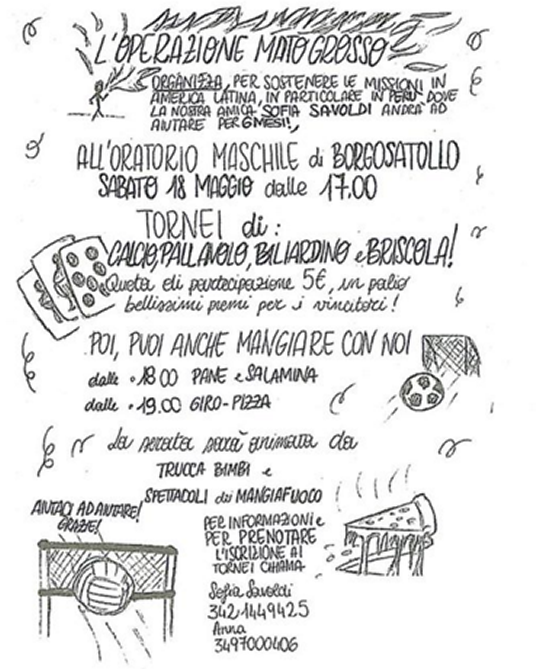 L'OPERAZIONE MATO GROSSO
ORGANIZZA, PER SOSTENERE LE MISSIONI IN
AMERICA LATINA, IN PARTICOLARE IN PERU' DOVE
LA NOSTRA AMICA SOFIA SAVOLDI ANDRA' AD
AIUTARE PER 6 MESI!,
ALL'ORATORIO MASCHILE di BORGOSATOLLO
SABATO 18 MAGGIO dalle 17.00
TORNEI di:
CALCIO, PALLAVOLO, BILIARDINO e BRISCOLA!
Quota di partecipazione 5€, in palio
bellissimi premi per i vincitori!
POI, PUOI ANCHE MANGIARE CON NOI
dalle • 18 00 PANE e SALAMINA
dalle • 19.00 GIRO-PIZZA
La serata sarà animata da
TRUCCA BIMBI e
SPETTACOLI dei MANGIAFUOCO
AIUTACI AD AIUTARE!
GRAZIE!
PER INFORMAZIONI e
PER PRENOTARE
L'ISCRIZIONE AI
TORNEI CHIAMA
Sofia Savoldi
342 1449425
Anna
3497000406